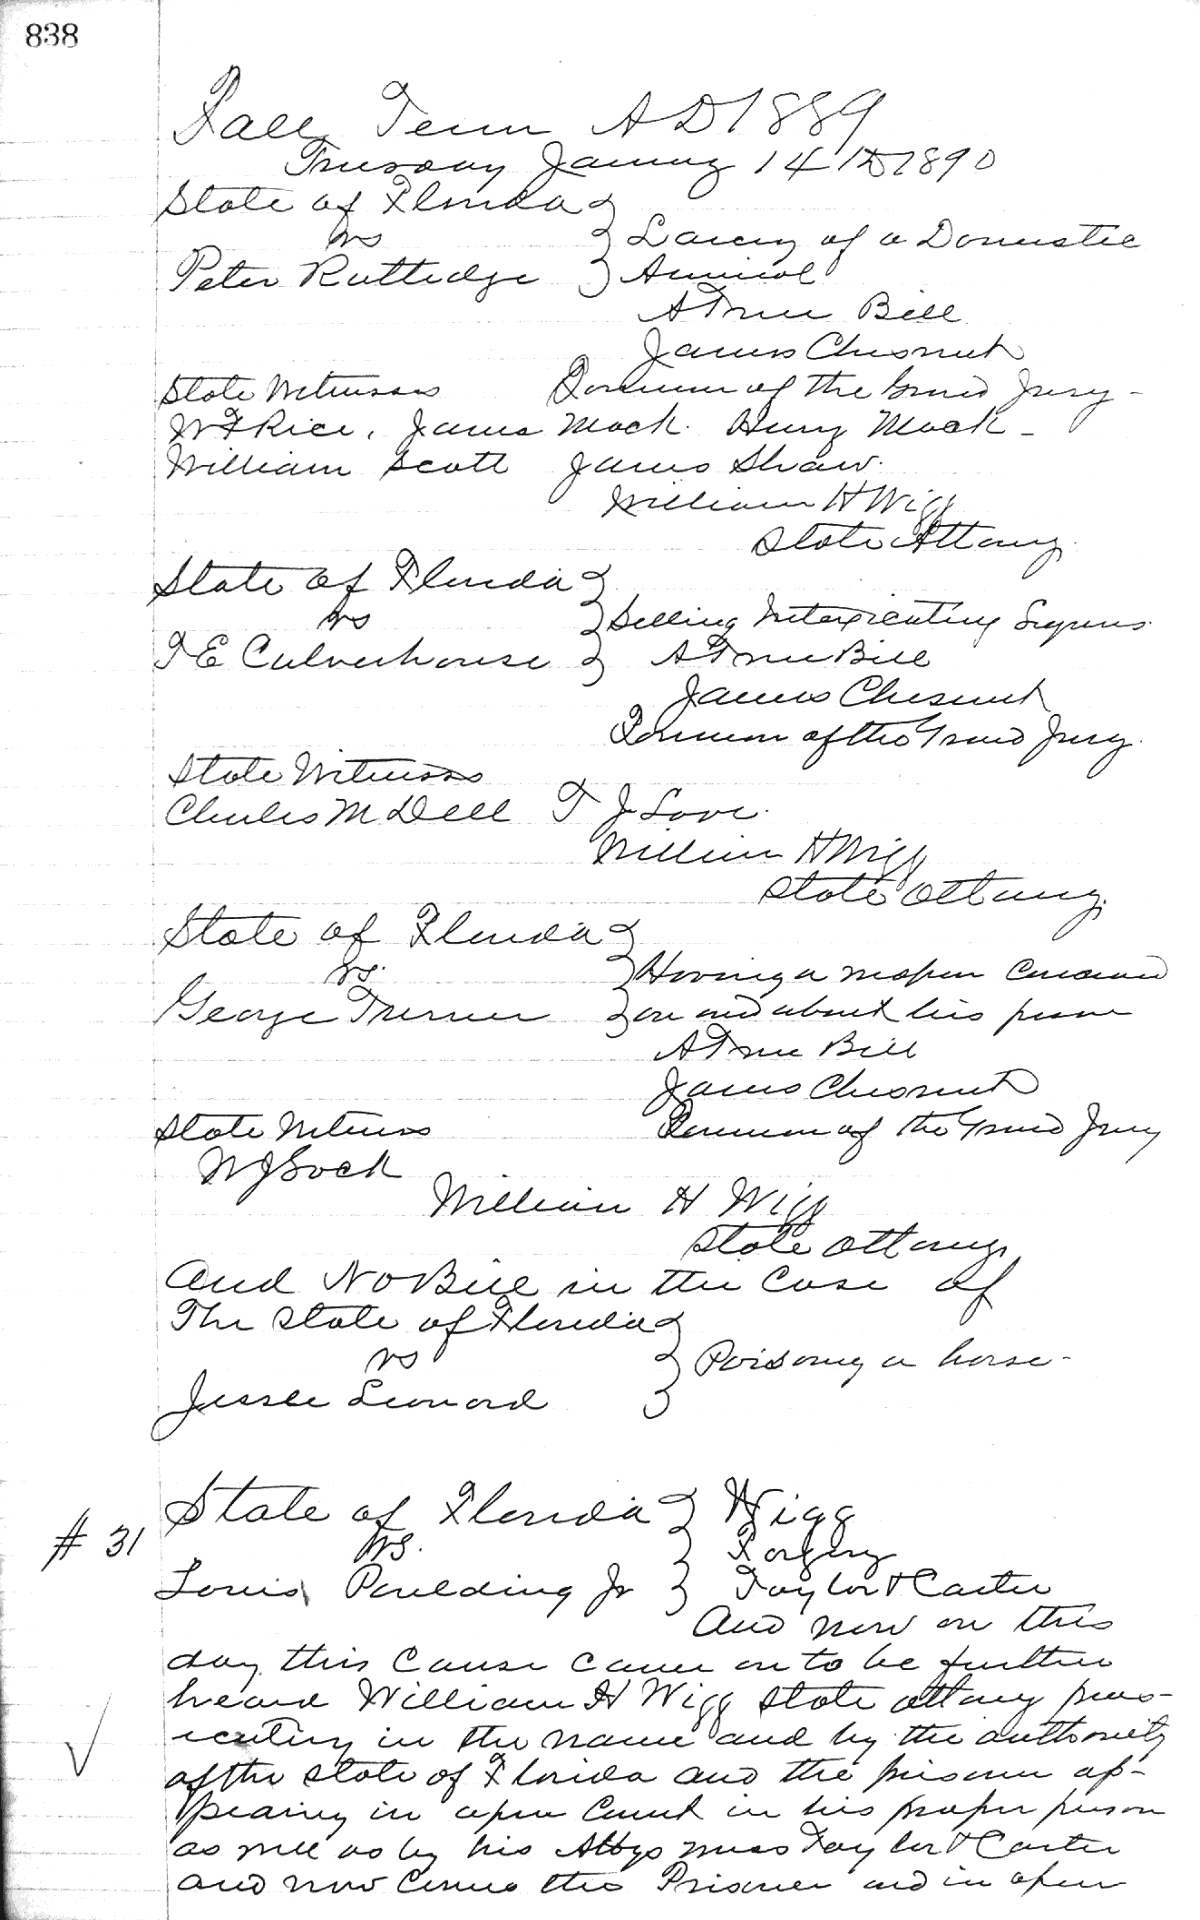 838
Fall Term AD 1889
Tuesday January 14 AD 1890
State of Florida
vs
Larceny of a Domestic
Peter Rutledge
Animal
A True Bill
James Chesnut
State Witnesses
Foreman of the Grand Jury -
W F Rice, James Mock. Henry Mock -
William Scott James Shaw.
William H Wigg
State Attorney
State of Florida
vs
Selling Intoxicating Liquors
T E Culverhouse
A True Bill
James Chesnut
Foreman of the Grand Jury.
State Witnesses
Charles McDell T J Love.
William H Wigg
State Attorney.
State of Florida
vs.
Having a weapon Concealed
George Turner
on and about his person
A True Bill
James Chesnut
State Witness
Foreman of the Grand Jury
W J
William H Wigg
State Attorney
And No Bill in the Case of
The State of Florida
vs
Poisoning a horse -
Jessee Leonard
# 31
State of Florida
Wigg
vs.
Forgery
Louis Paulding Jr
Taylor & Carter
And now on this
day this Cause came on to be further
heard William H Wigg State attorney pros-
ecuting in the name and by the authority
of the State of Florida and the prisoner ap-
pearing in open Court in his proper person
as well as by his Attys mess Taylor & Carter
and now Comes this Prisoner and in open